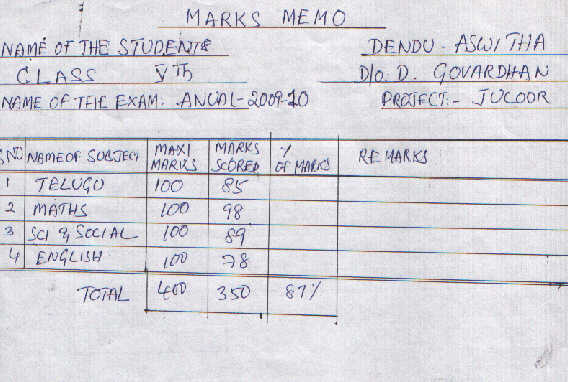 MARKS MEMO
NAME OF THE STUDENTS DENDU. ASWITHA
CLASS Vth D/o D. GOVARDHAN
NAME OF THE EXAM: ANUAL-2009-10 PROJECT:- JUCOOR
SNO NAME OF SUBJECT MAXI MARKS MARKS SCORED % OF MARKS REMARKS
1 TELUGU 100 85
2 MATHS 100 98
3 SCI & SOCIAL 100 89
4 ENGLISH 100 78
TOTAL 400 350 87%